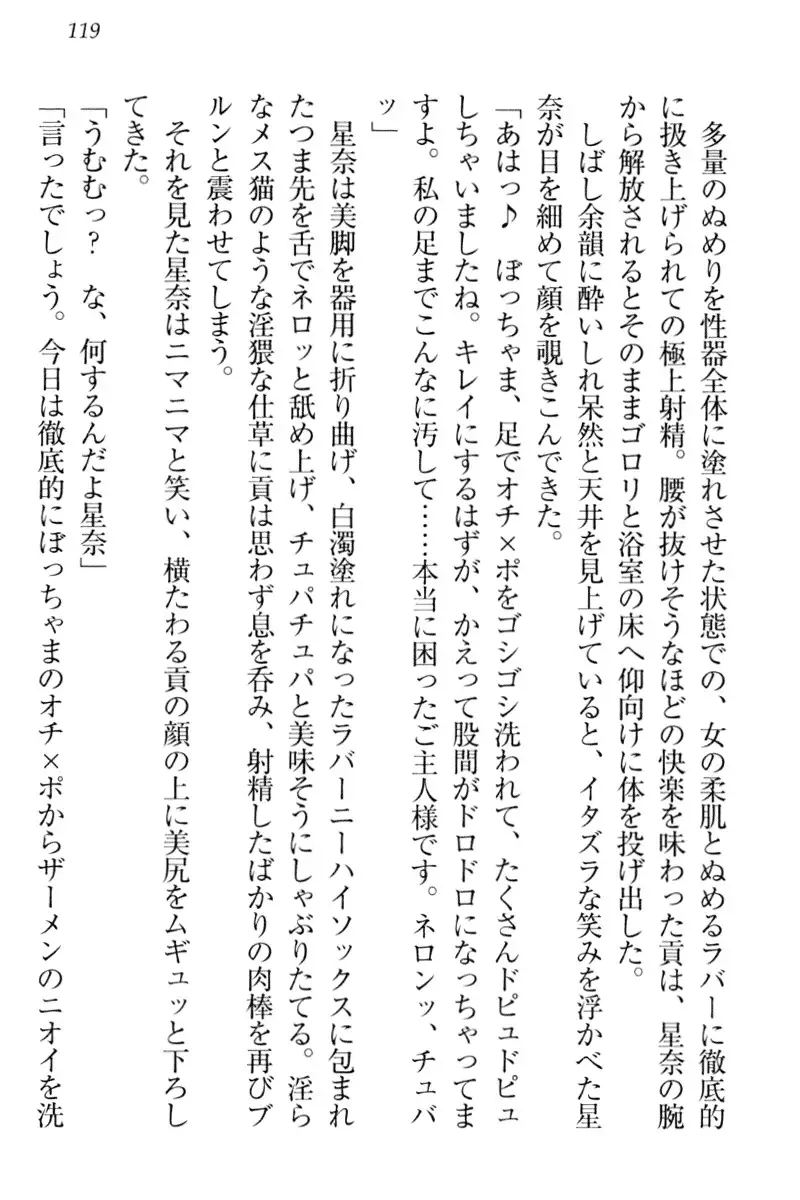 119
多量のぬめりを性器全体に塗れさせた状態での、女の柔肌とぬめるラバーに徹底的
に扱き上げられての極上射精。腰が抜けそうなほどの快楽を味わった貢は、星奈の腕
から解放されるとそのままゴロリと浴室の床へ仰向けに体を投げ出した。
しばし余韻に酔いしれ呆然と天井を見上げていると、イタズラな笑みを浮かべた星
奈が目を細めて顔を覗きこんできた。
「あはっ♪　ぼっちゃま、足でオチ×ポをゴシゴシ洗われて、たくさんドピュドピュ
しちゃいましたね。キレイにするはずが、かえって股間がドロドロになっちゃってま
すよ。私の足までこんなに汚して……本当に困ったご主人様です。ネロンッ、チュパ
ッ」
星奈は美脚を器用に折り曲げ、白濁塗れになったラバーニーハイソックスに包まれ
たつま先を舌でネロッと舐め上げ、チュパチュパと美味そうにしゃぶりたてる。淫ら
なメス猫のような淫猥な仕草に貢は思わず息を呑み、射精したばかりの肉棒を再びブ
ルンと震わせてしまう。
それを見た星奈はニマニマと笑い、横たわる貢の顔の上に美尻をムギュッと下ろし
てきた。
「うむむっ？　な、何するんだよ星奈」
「言ったでしょう。今日は徹底的にぼっちゃまのオチ×ポからザーメンのニオイを洗